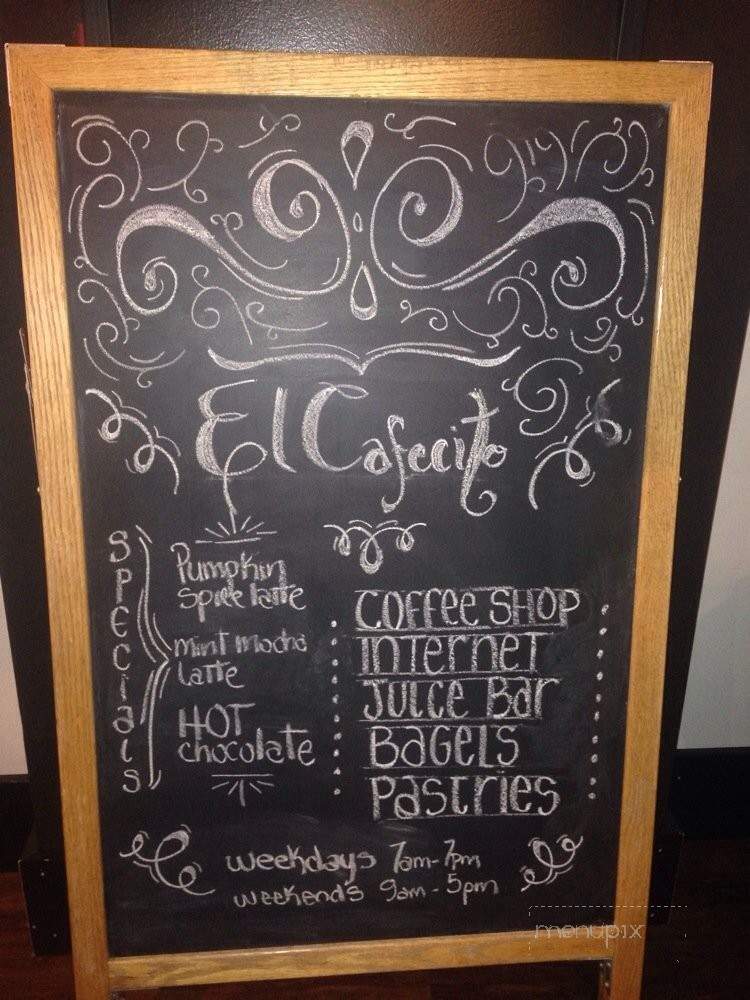 El Cafecito
Specials
Pumpkin
spice latte
mint mocha
latte
HOT
chocolate
COFFEE SHOP
INTERNET
JUICE Bar
BAGELS
Pastries
weekdays 7am-7pm
weekends 9am-5pm
menupix